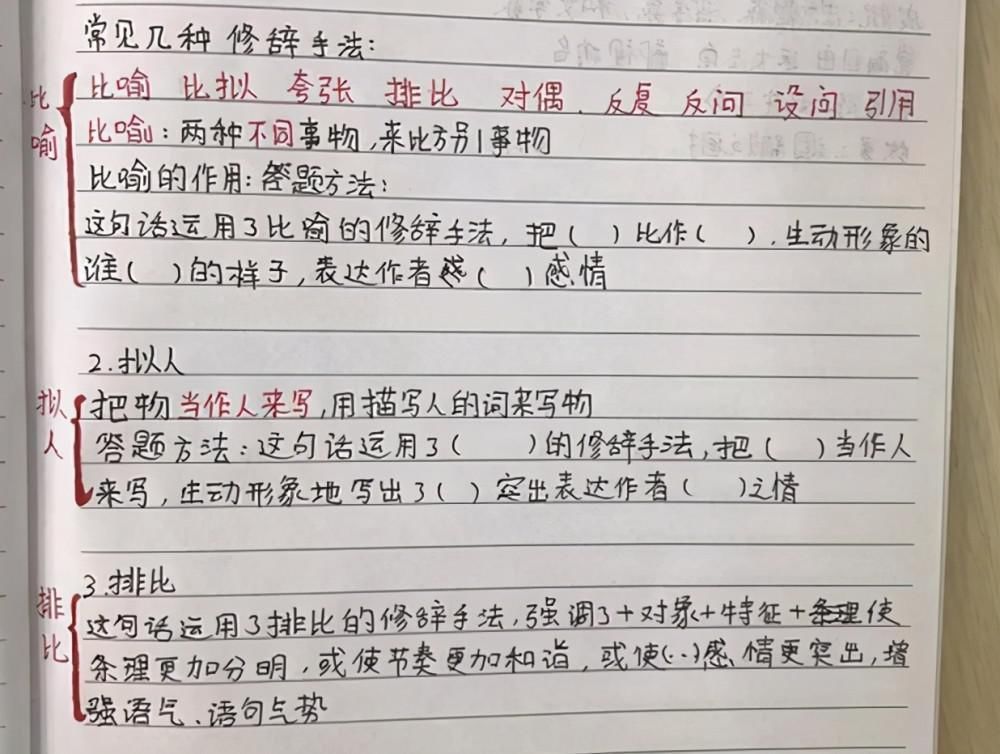 常见几种修辞手法:
比喻 比拟 夸张 排比 对偶、反复 反问 设问 引用
比喻
比喻:两种不同事物,来比方另1事物
比喻的作用:答题方法:
这句话运用了比喻的修辞手法,把( )比作( ),生动形象的
谁( )的样子,表达作者感( )感情
2.拟人
拟人
把物当作人来写,用描写人的词来写物
答题方法:这句话运用了( )的修辞手法,把( )当作人
来写,生动形象地写出了( )突出表达作者( )之情
3.排比
排比
这句话运用了排比的修辞手法,强调了+对象+特征+条理使
条理更加分明,或使节奏更加和谐,或使(··)感情更突出,增
强语气、语句气势